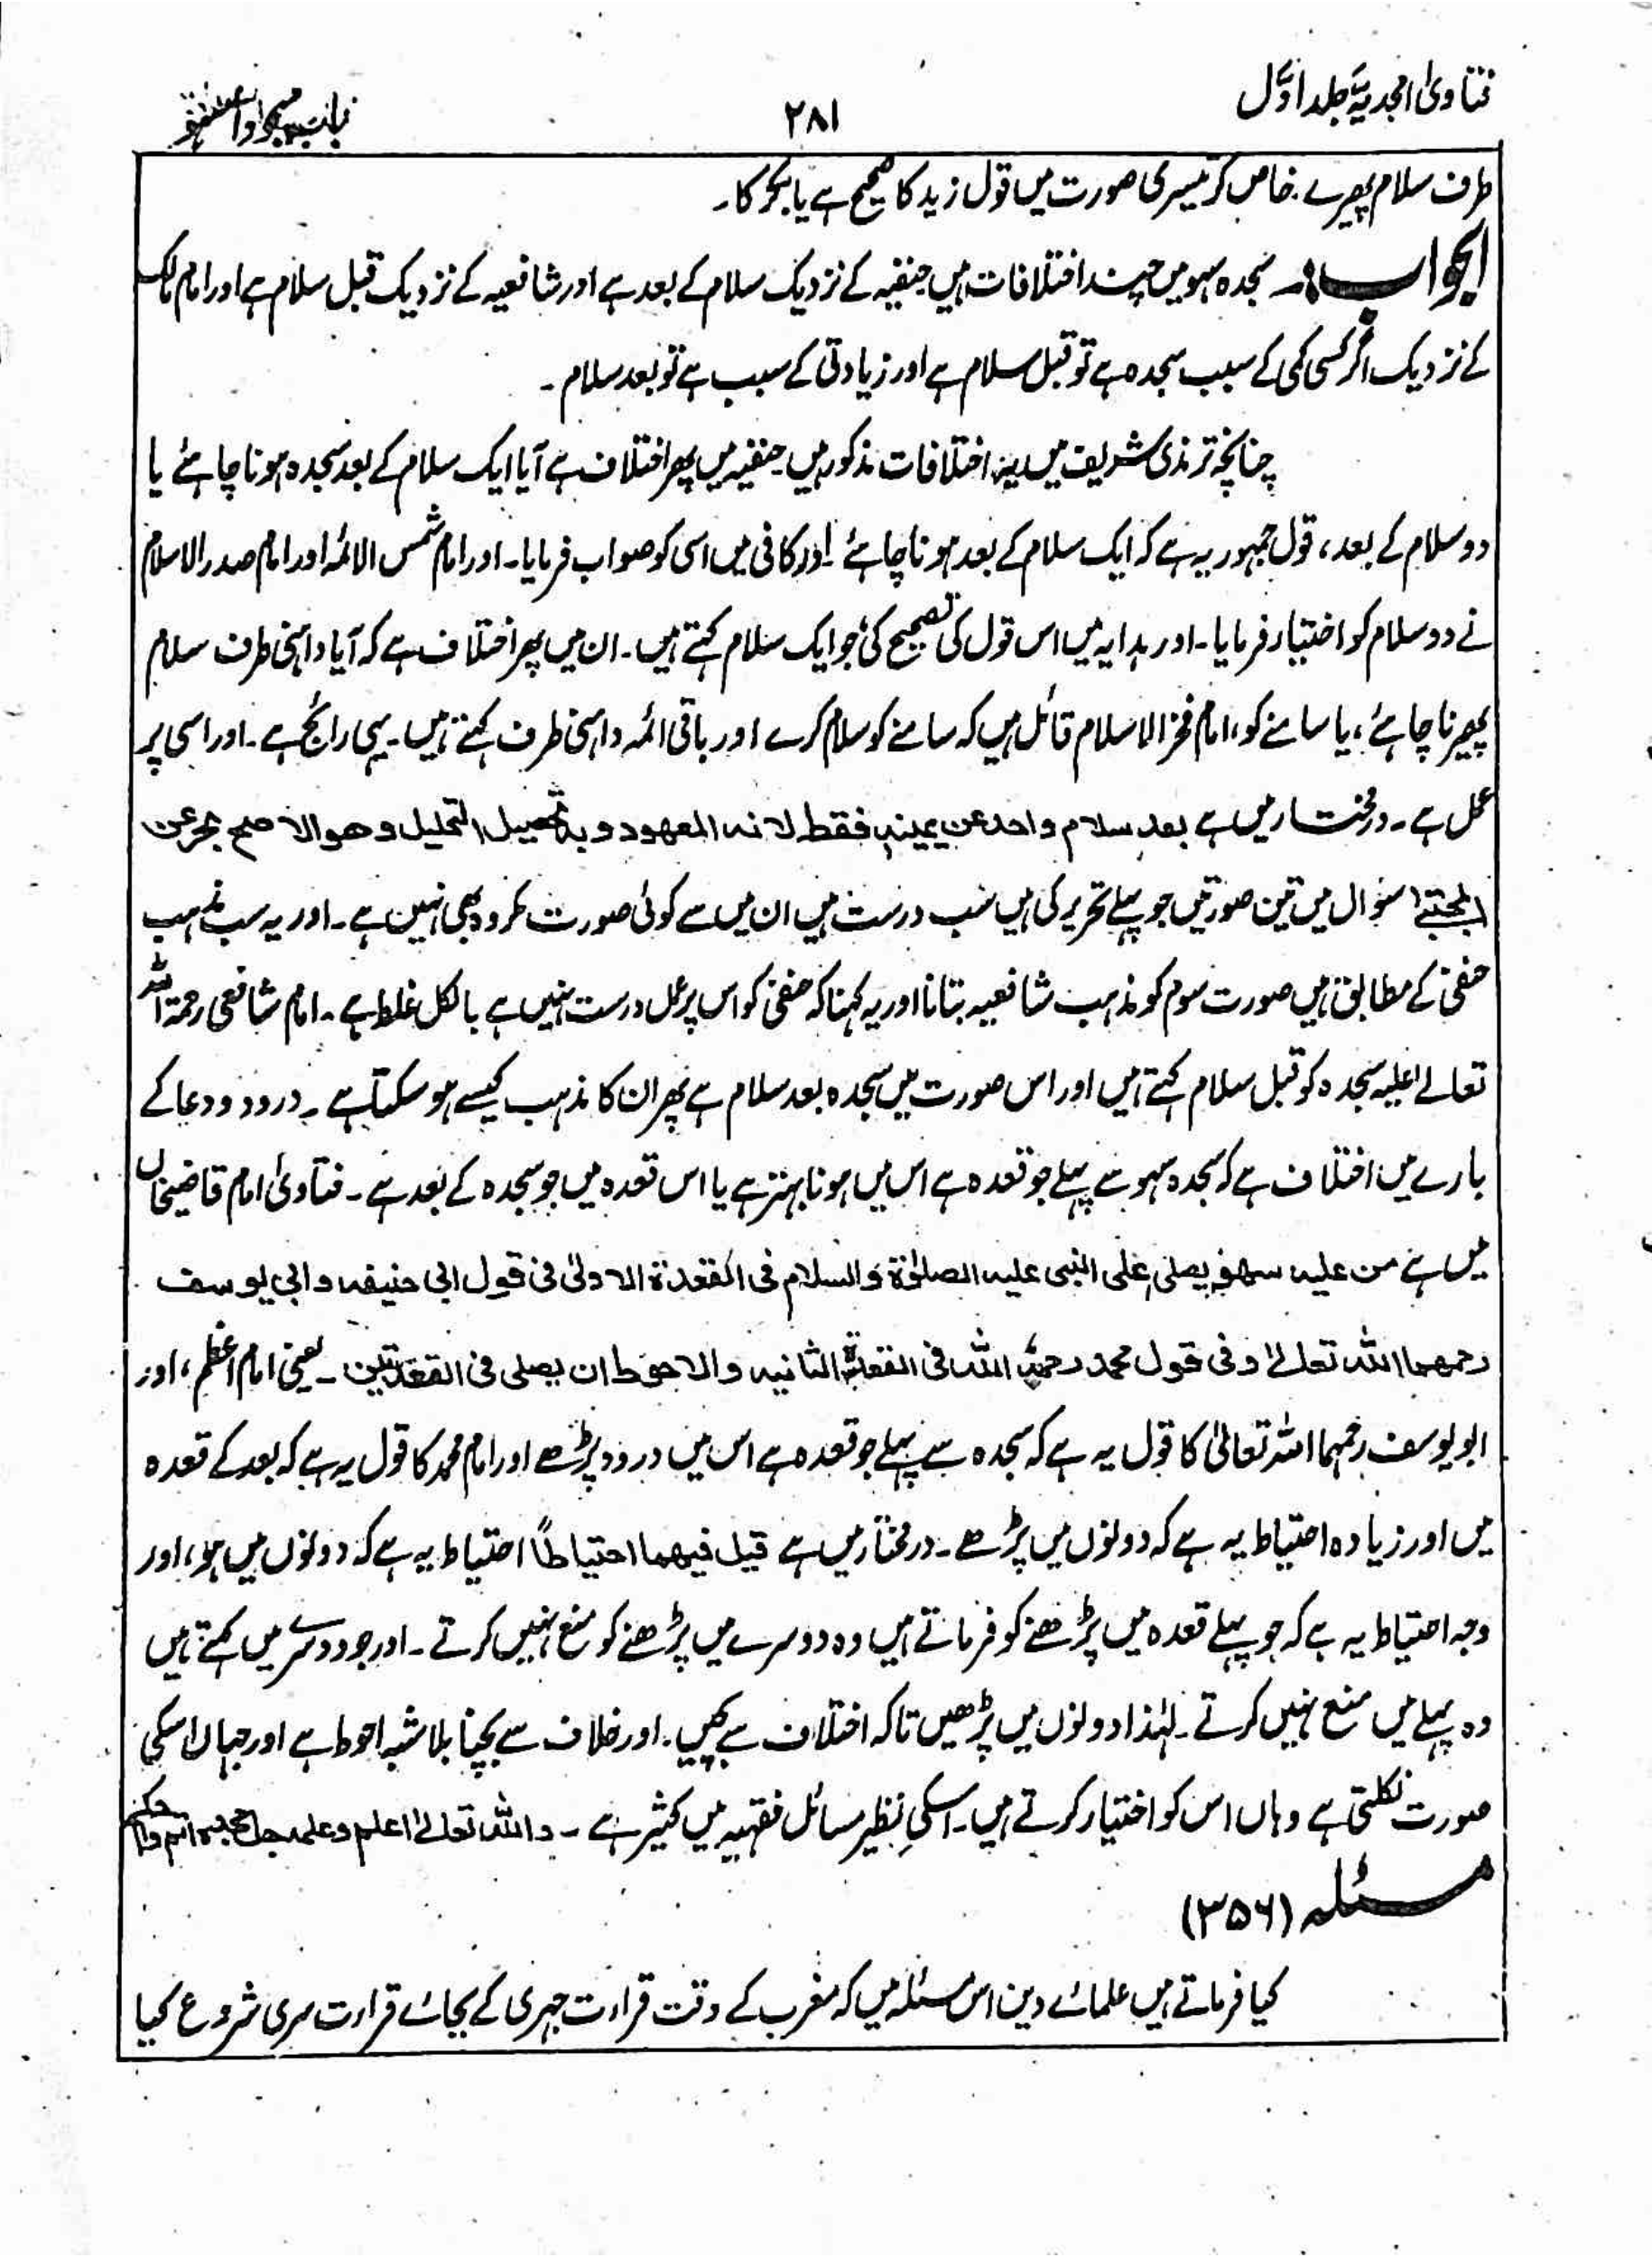 فتاویٰ امجدیہ جلد اوّل
۲۸۱
باب سجود السہو
طرف سلام پھیرے۔ خاص کر تیسری صورت میں قول زید کا صحیح ہے یا بکر کا۔
الجواب:۔ سجدہ سہو میں چند اختلافات ہیں حنفیہ کے نزدیک سلام کے بعد ہے اور شافعیہ کے نزدیک قبل سلام ہے اور امام مالک
کے نزدیک اگر کسی کمی کے سبب سجدہ ہے تو قبل سلام ہے اور زیادتی کے سبب ہے تو بعد سلام ۔
چنانچہ ترمذی شریف میں یہ اختلافات مذکور ہیں حنفیہ میں پھر اختلاف ہے آیا ایک سلام کے بعد سجدہ ہونا چاہئے یا
دو سلام کے بعد، قول جمہور یہ ہے کہ ایک سلام کے بعد ہونا چاہئے اور کافی میں اسی کو صواب فرمایا۔ اور امام شمس الائمہ اور امام صدر الاسلام
نے دو سلام کو اختیار فرمایا۔ اور ہدایہ میں اس قول کی تصحیح کی، جو ایک سلام کہتے ہیں۔ ان میں پھر اختلاف ہے کہ آیا داہنی طرف سلام
پھیرنا چاہئے، یا سامنے کو، امام فخر الاسلام قائل ہیں کہ سامنے کو سلام کرے اور باقی ائمہ داہنی طرف کہتے ہیں۔ یہی راجح ہے۔ اور اسی پر
عمل ہے۔ درمختار میں ہے بعد سلام واحد عن یمینہ فقط لانہ المعہود وبہ یحصیل التحلیل وھو الاصح بحر عن
المجتبے سوال میں تین صورتیں جو پہلے تحریر کی ہیں سب درست ہیں ان میں سے کوئی صورت مکروہ بھی نہیں ہے۔ اور یہ سب مذہب
حنفی کے مطابق ہیں صورت سوم کو مذہب شافعیہ بتانا اور یہ کہنا کہ حنفی کو اس پر عمل درست نہیں ہے بالکل غلط ہے۔ امام شافعی رحمۃ اللہ
تعالےٰ علیہ سجدہ کو قبل سلام کہتے ہیں اور اس صورت میں سجدہ بعد سلام ہے پھر ان کا مذہب کیسے ہو سکتا ہے ۔ درود و دعا کے
بارے میں اختلاف ہے کہ سجدہ سہو سے پہلے جو قعدہ ہے اس میں ہونا بہتر ہے یا اس قعدہ میں جو سجدہ کے بعد ہے ۔ فتاویٰ امام قاضیخاں
میں ہے من علیہ سھو یصلی علی النبی علیہ الصلوٰۃ والسلام فی القعدۃ الاولیٰ فی قول ابی حنیفہ وابی یوسف
رحمھما اللہ تعالےٰ وفی قول محمد رحمہ اللہ فی القعدۃ الثانیہ والاحوط ان یصلی فی القعدتین ۔ یعنی امام اعظم، اور
ابو یوسف رحمہما اللہ تعالیٰ کا قول یہ ہے کہ سجدہ سے پہلے جو قعدہ ہے اس میں درود پڑھے اور امام محمد کا قول یہ ہے کہ بعد کے قعدہ
میں اور زیادہ احتیاط یہ ہے کہ دونوں میں پڑھے ۔ درمختار میں ہے قیل فیھما احتیاطاً احتیاط یہ ہے کہ دونوں میں ہو، اور
وجہ احتیاط یہ ہے کہ جو پہلے قعدہ میں پڑھنے کو فرماتے ہیں وہ دوسرے میں پڑھنے کو منع نہیں کرتے ۔ اور جو دوسرے میں کہتے ہیں
وہ پہلے میں منع نہیں کرتے ۔ لہٰذا دونوں میں پڑھیں تاکہ اختلاف سے بچیں۔ اور خلاف سے بچنا بلا شبہ احوط ہے اور جہاں اسکی
صورت نکلتی ہے وہاں اس کو اختیار کرتے ہیں۔ اسکی نظیر مسائل فقہیہ میں کثیر ہے ۔ واللہ تعالےٰ اعلم وعلمہ جل مجدہ اتم واحکم
مسئلہ (۳۵۶)
کیا فرماتے ہیں علمائے دین اس مسئلہ میں کہ مغرب کے وقت قراءت جہری کے بجائے قراءت سری شروع کیا